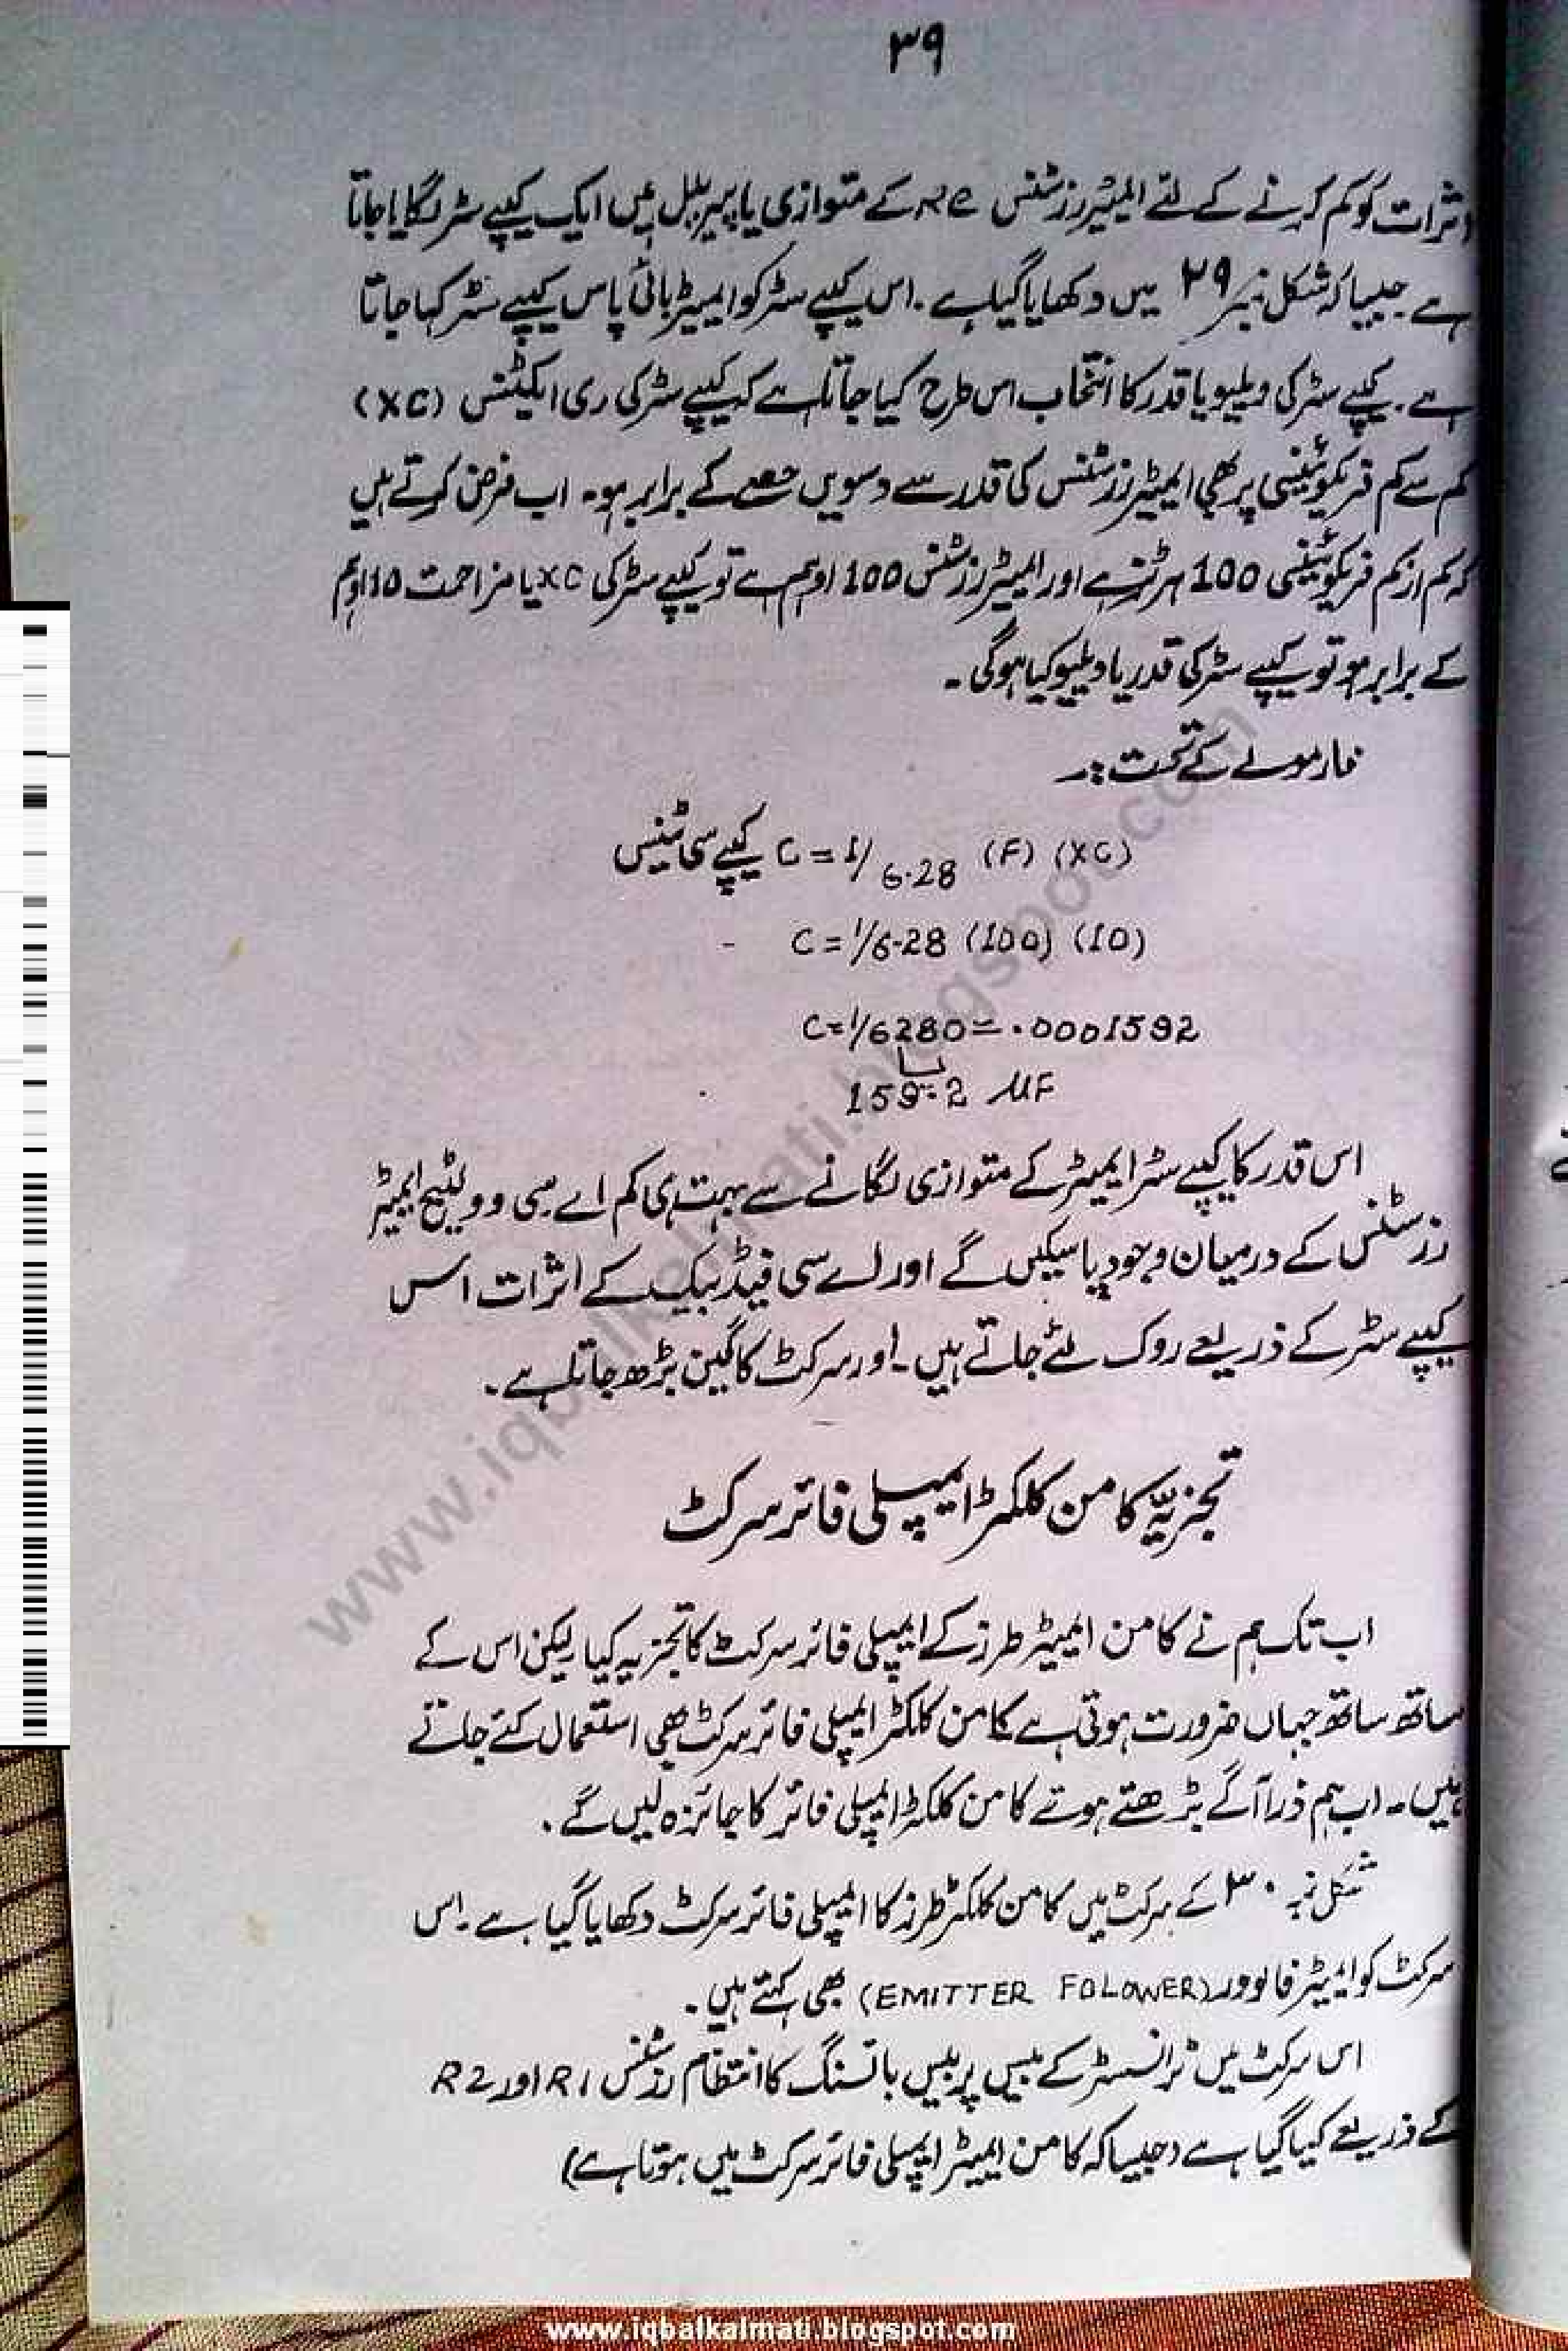 ۳۹
اثرات کو کم کرنے کے لئے ایمیٹر رزسٹنس Re کے متوازی یا پیریلل میں ایک کیپے سٹر لگایا جاتا
ہے جیسا کہ شکل نمبر ۲۹ میں دکھایا گیا ہے۔ اس کیپے سٹر کو ایمیٹر بائی پاس کیپے سٹر کہا جاتا
ہے۔ کیپے سٹر کی ویلیو یا قدر کا انتخاب اس طرح کیا جاتا ہے کہ کیپے سٹر کی ری ایکٹنس (XC)
کم سے کم فریکوئینسی پر بھی ایمیٹر رزسٹنس کی قدر سے دسویں حصے کے برابر ہو۔ اب فرض کرتے ہیں
کہ کم از کم فریکوئینسی 100 ہرٹز ہے اور ایمیٹر رزسٹنس 100 اوہم ہے تو کیپے سٹر کی XC یا مزاحمت 10 اوہم
کے برابر ہو تو کیپے سٹر کی قدر یا ویلیو کیا ہوگی۔
فارمولے کے تحت :۔
کیپے سی ٹینس C = 1/6.28 (F) (XC)
C = 1/6.28 (100) (10)
C = 1/6280 = .0001592
یا
159.2 µF
اس قدر کا کیپے سٹر ایمیٹر کے متوازی لگانے سے بہت ہی کم اے سی وولٹیج ایمیٹر
رزسٹنس کے درمیان وجود پا سکیں گے اور اے سی فیڈ بیک کے اثرات اس
کیپے سٹر کے ذریعے روک لئے جاتے ہیں۔ اور سرکٹ کا گین بڑھ جاتا ہے۔
تجزیہّ کامن کلکٹر ایمپلی فائر سرکٹ
اب تک ہم نے کامن ایمیٹر طرز کے ایمپلی فائر سرکٹ کا تجزیہ کیا لیکن اس کے
ساتھ ساتھ جہاں ضرورت ہوتی ہے کامن کلکٹر ایمپلی فائر سرکٹ بھی استعمال کئے جاتے
ہیں۔ اب ہم ذرا آگے بڑھتے ہوتے کامن کلکٹر ایمپلی فائر کا جائزہ لیں گے۔
شکل نمبر ۳۰ کے سرکٹ میں کامن کلکٹر طرز کا ایمپلی فائر سرکٹ دکھایا گیا ہے۔ اس
سرکٹ کو ایمیٹر فالوور (EMITTER FOLOWER) بھی کہتے ہیں۔
اس سرکٹ میں ٹرانسسٹر کے بیس پر بیس بائسنگ کا انتظام رزسٹنس R1 اور R2
کے ذریعے کیا گیا ہے (جیسا کہ کامن ایمیٹر ایمپلی فائر سرکٹ میں ہوتا ہے)
www.iqbalkalmati.blogspot.com
www.iqbalkalmati.blogspot.com